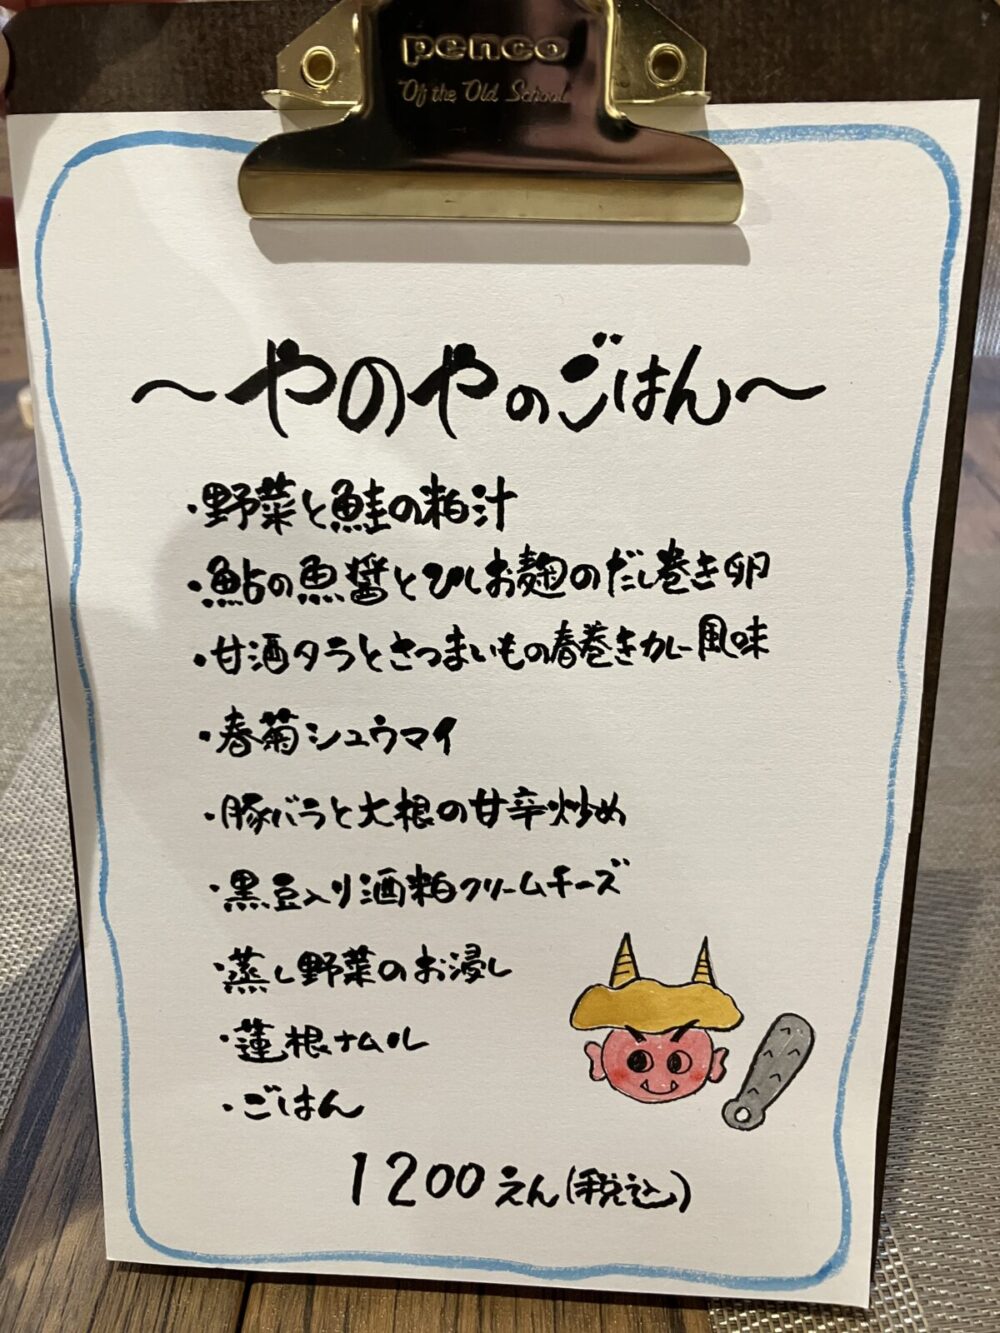 penco
Of the Old School
～やのやのごはん～
・野菜と鮭の粕汁
・鮎の魚醤とひしお麹のだし巻き卵
・甘酒タラとさつまいもの春巻きカレー風味
・春菊シュウマイ
・豚バラと大根の甘辛炒め
・黒豆入り酒粕クリームチーズ
・蒸し野菜のお浸し
・蓮根ナムル
・ごはん
1200えん(税込)